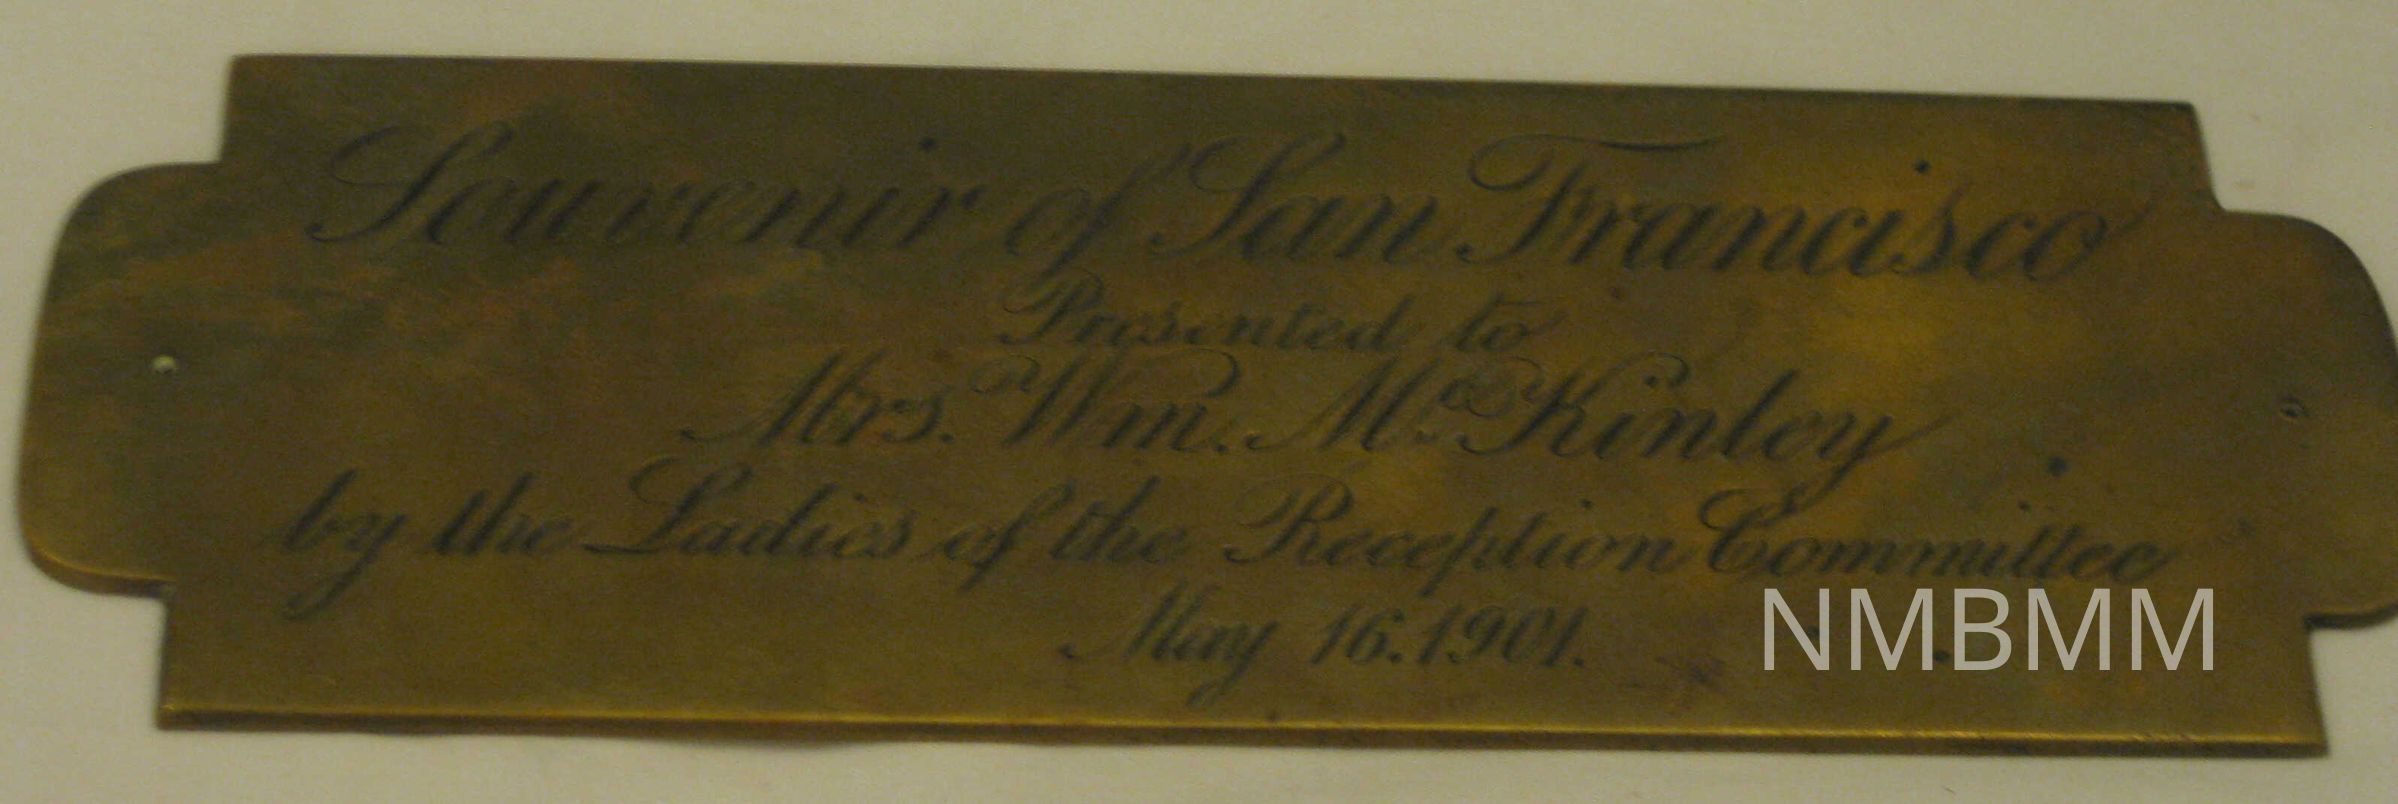 Souvenir of San Francisco
Presented to
Mrs. Wm. McKinley
by the Ladies of the Reception Committee
May 16. 1901.
NMBMM